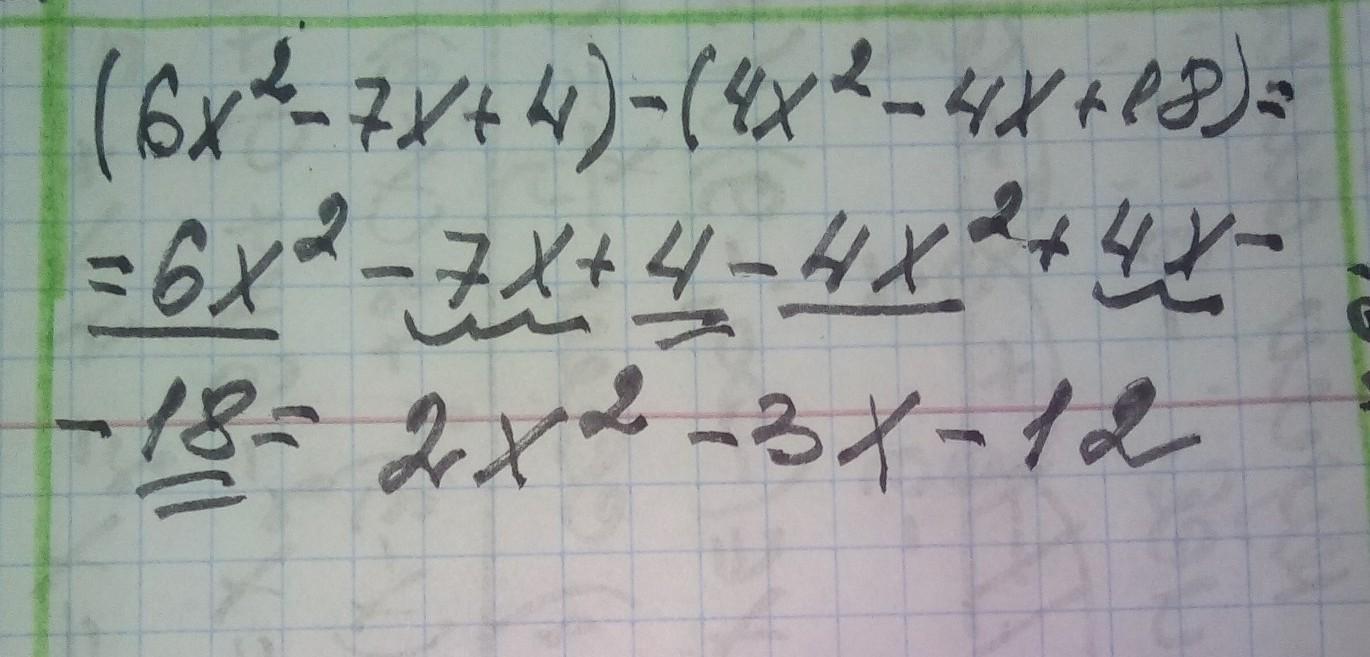 (6x²-7x+4)-(4x²-4x+18)=
=6x²-7x+4-4x²+4x-
-18= 2x²-3x-12